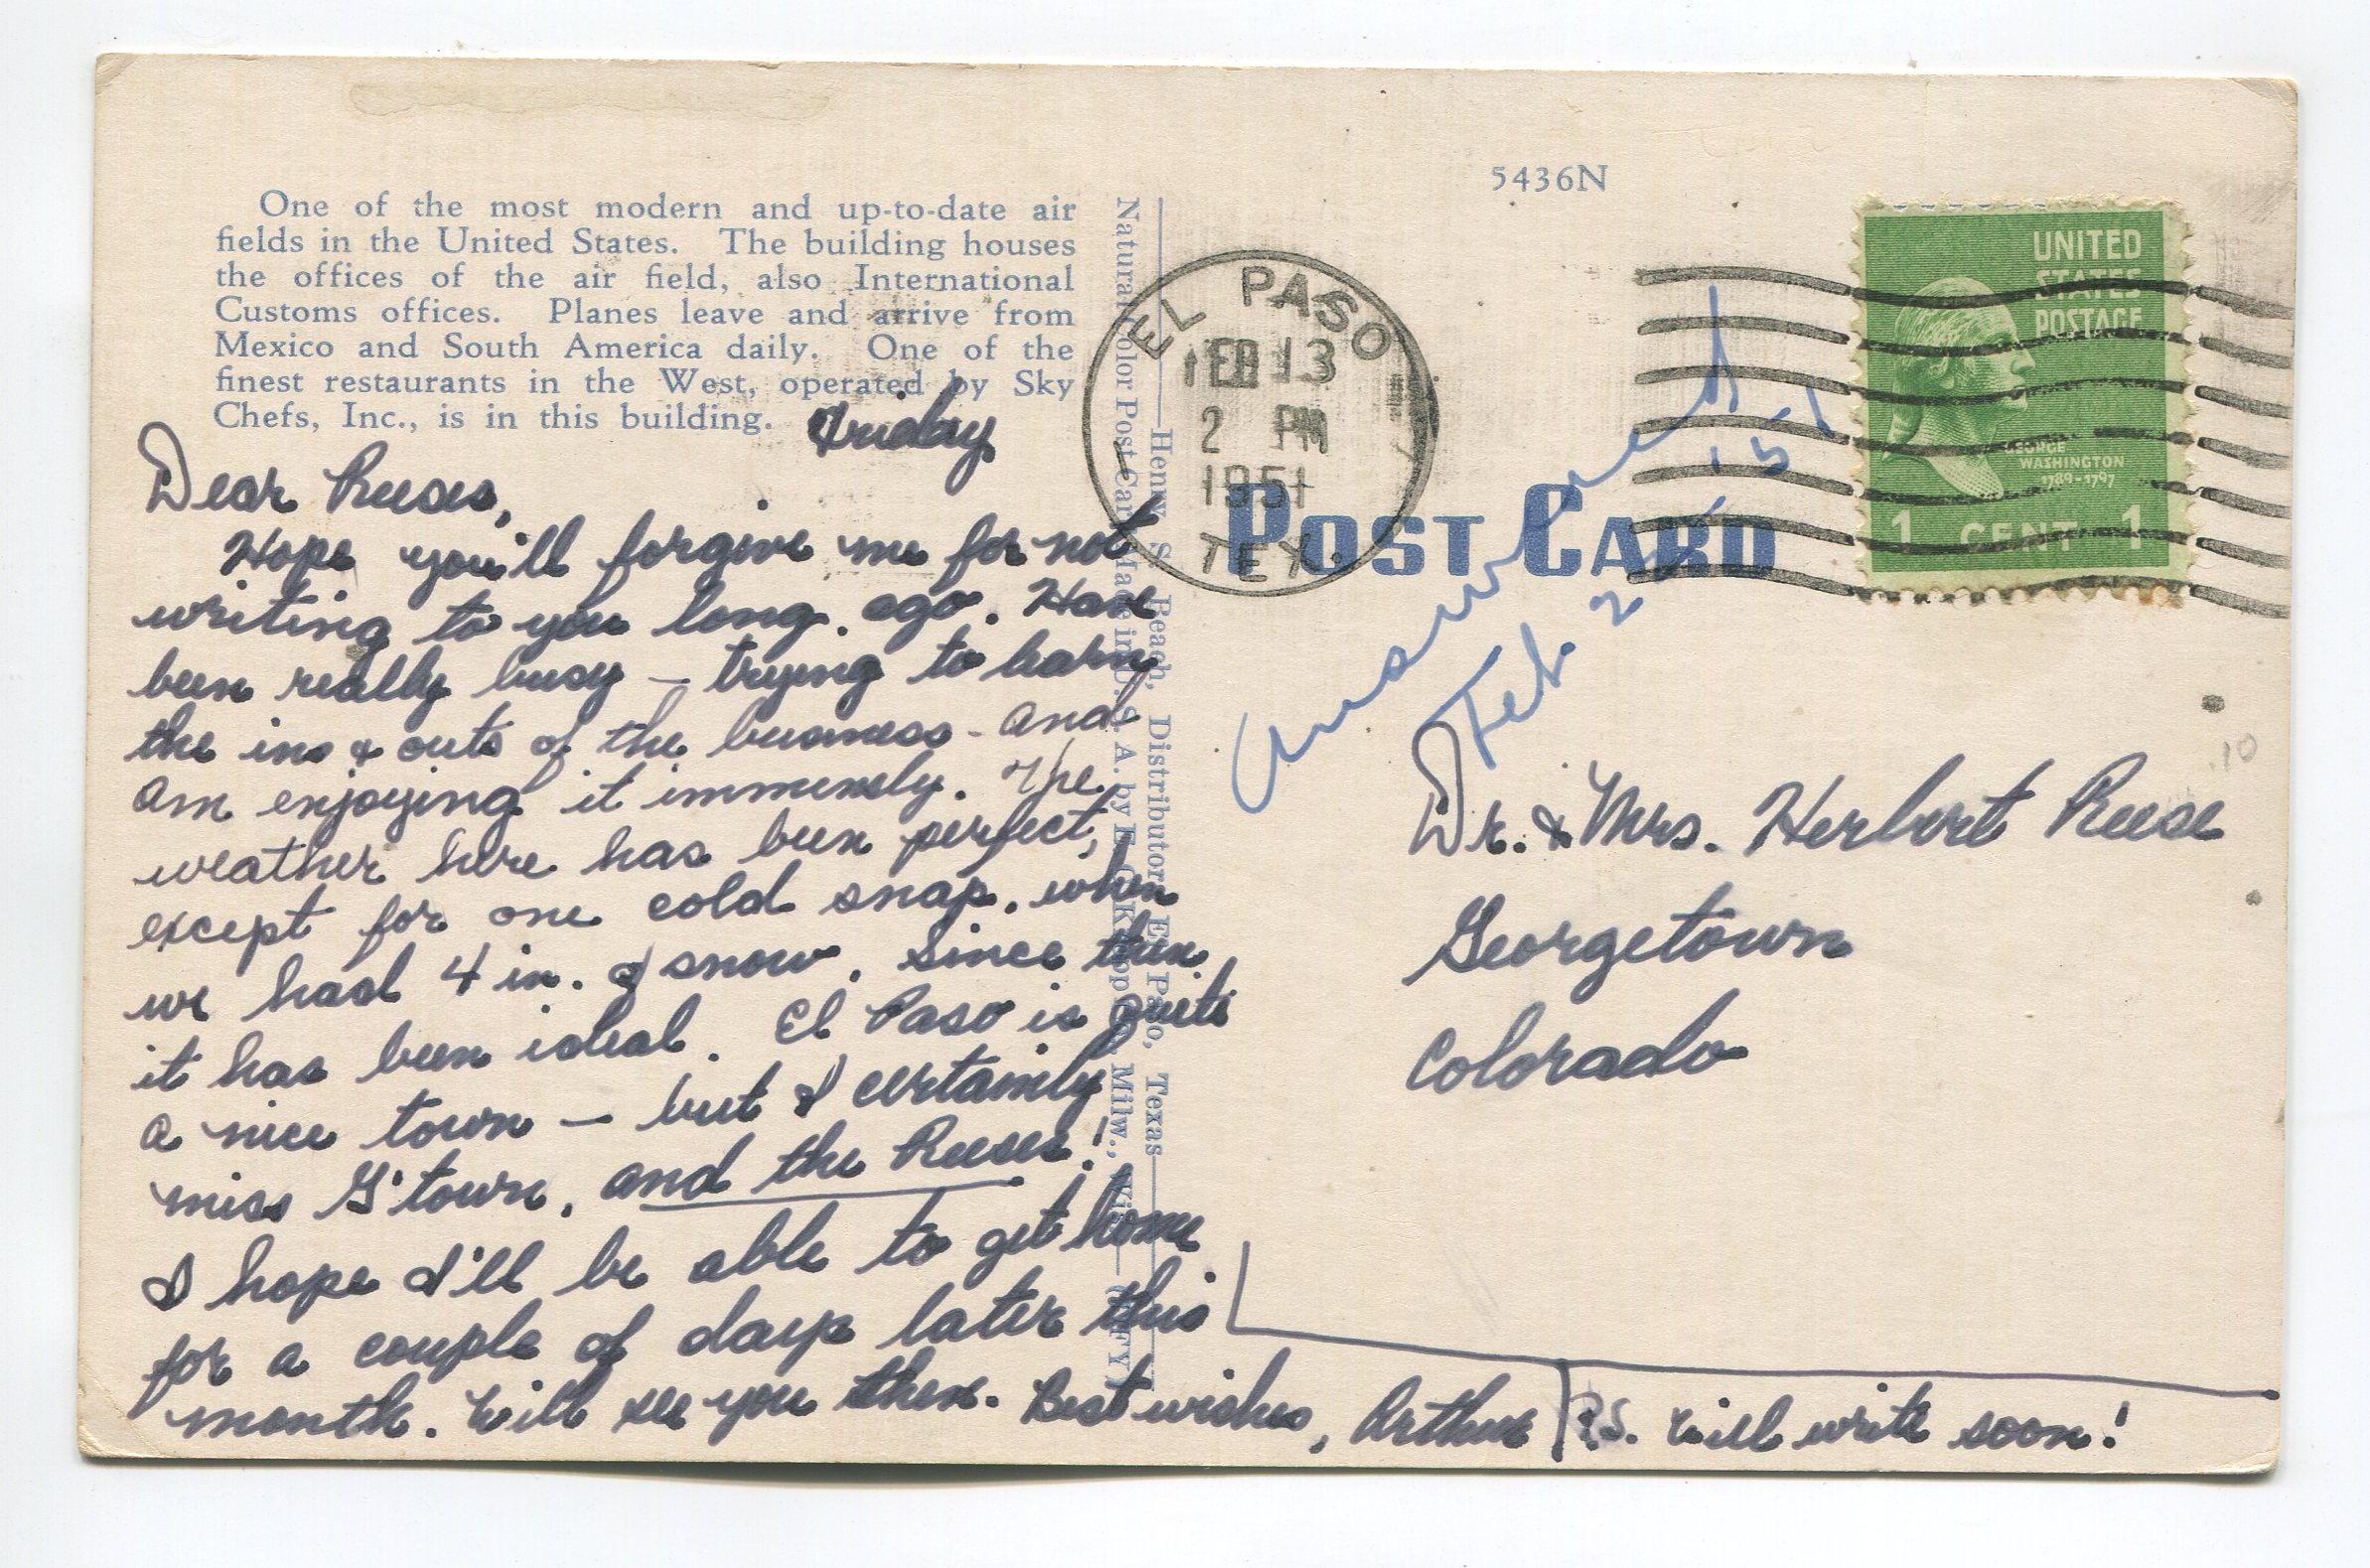 5436N
One of the most modern and up-to-date air
fields in the United States. The building houses
the offices of the air field, also International
Customs offices. Planes leave and arrive from
Mexico and South America daily. One of the
finest restaurants in the West, operated by Sky
Chefs, Inc., is in this building.
Friday
Dear Reeses,
Hope you'll forgive me for not
writing to you long ago. Have
been really busy – trying to learn
the ins & outs of the business - and
am enjoying it immensly. The
weather here has been perfect,
except for one cold snap, when
we had 4 in. of snow. Since then
it has been ideal. El Paso is quite
a nice town – but I certainly
miss G'town, and the Reeses!
I hope I'll be able to get home
for a couple of days later this
month. Will see you then. Best wishes, Arthur
P.S. Will write soon!
Henry S. Beach, Distributor, El Paso, Texas
Natural Color Post Card Made in U.S.A. by E. C. Kropp Co., Milw., Wis.
EL PASO
FEB 13
2 PM
1951
TEX.
POST CARD
UNITED
STATES
POSTAGE
GEORGE
WASHINGTON
1789-1797
1 CENT 1
answered
Feb. 2
Dr. & Mrs. Herbert Reese
Georgetown
Colorado
.10